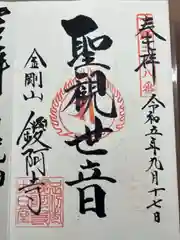 奉拝
令和五年九月十七日
聖観世音
金剛山
鑁阿寺